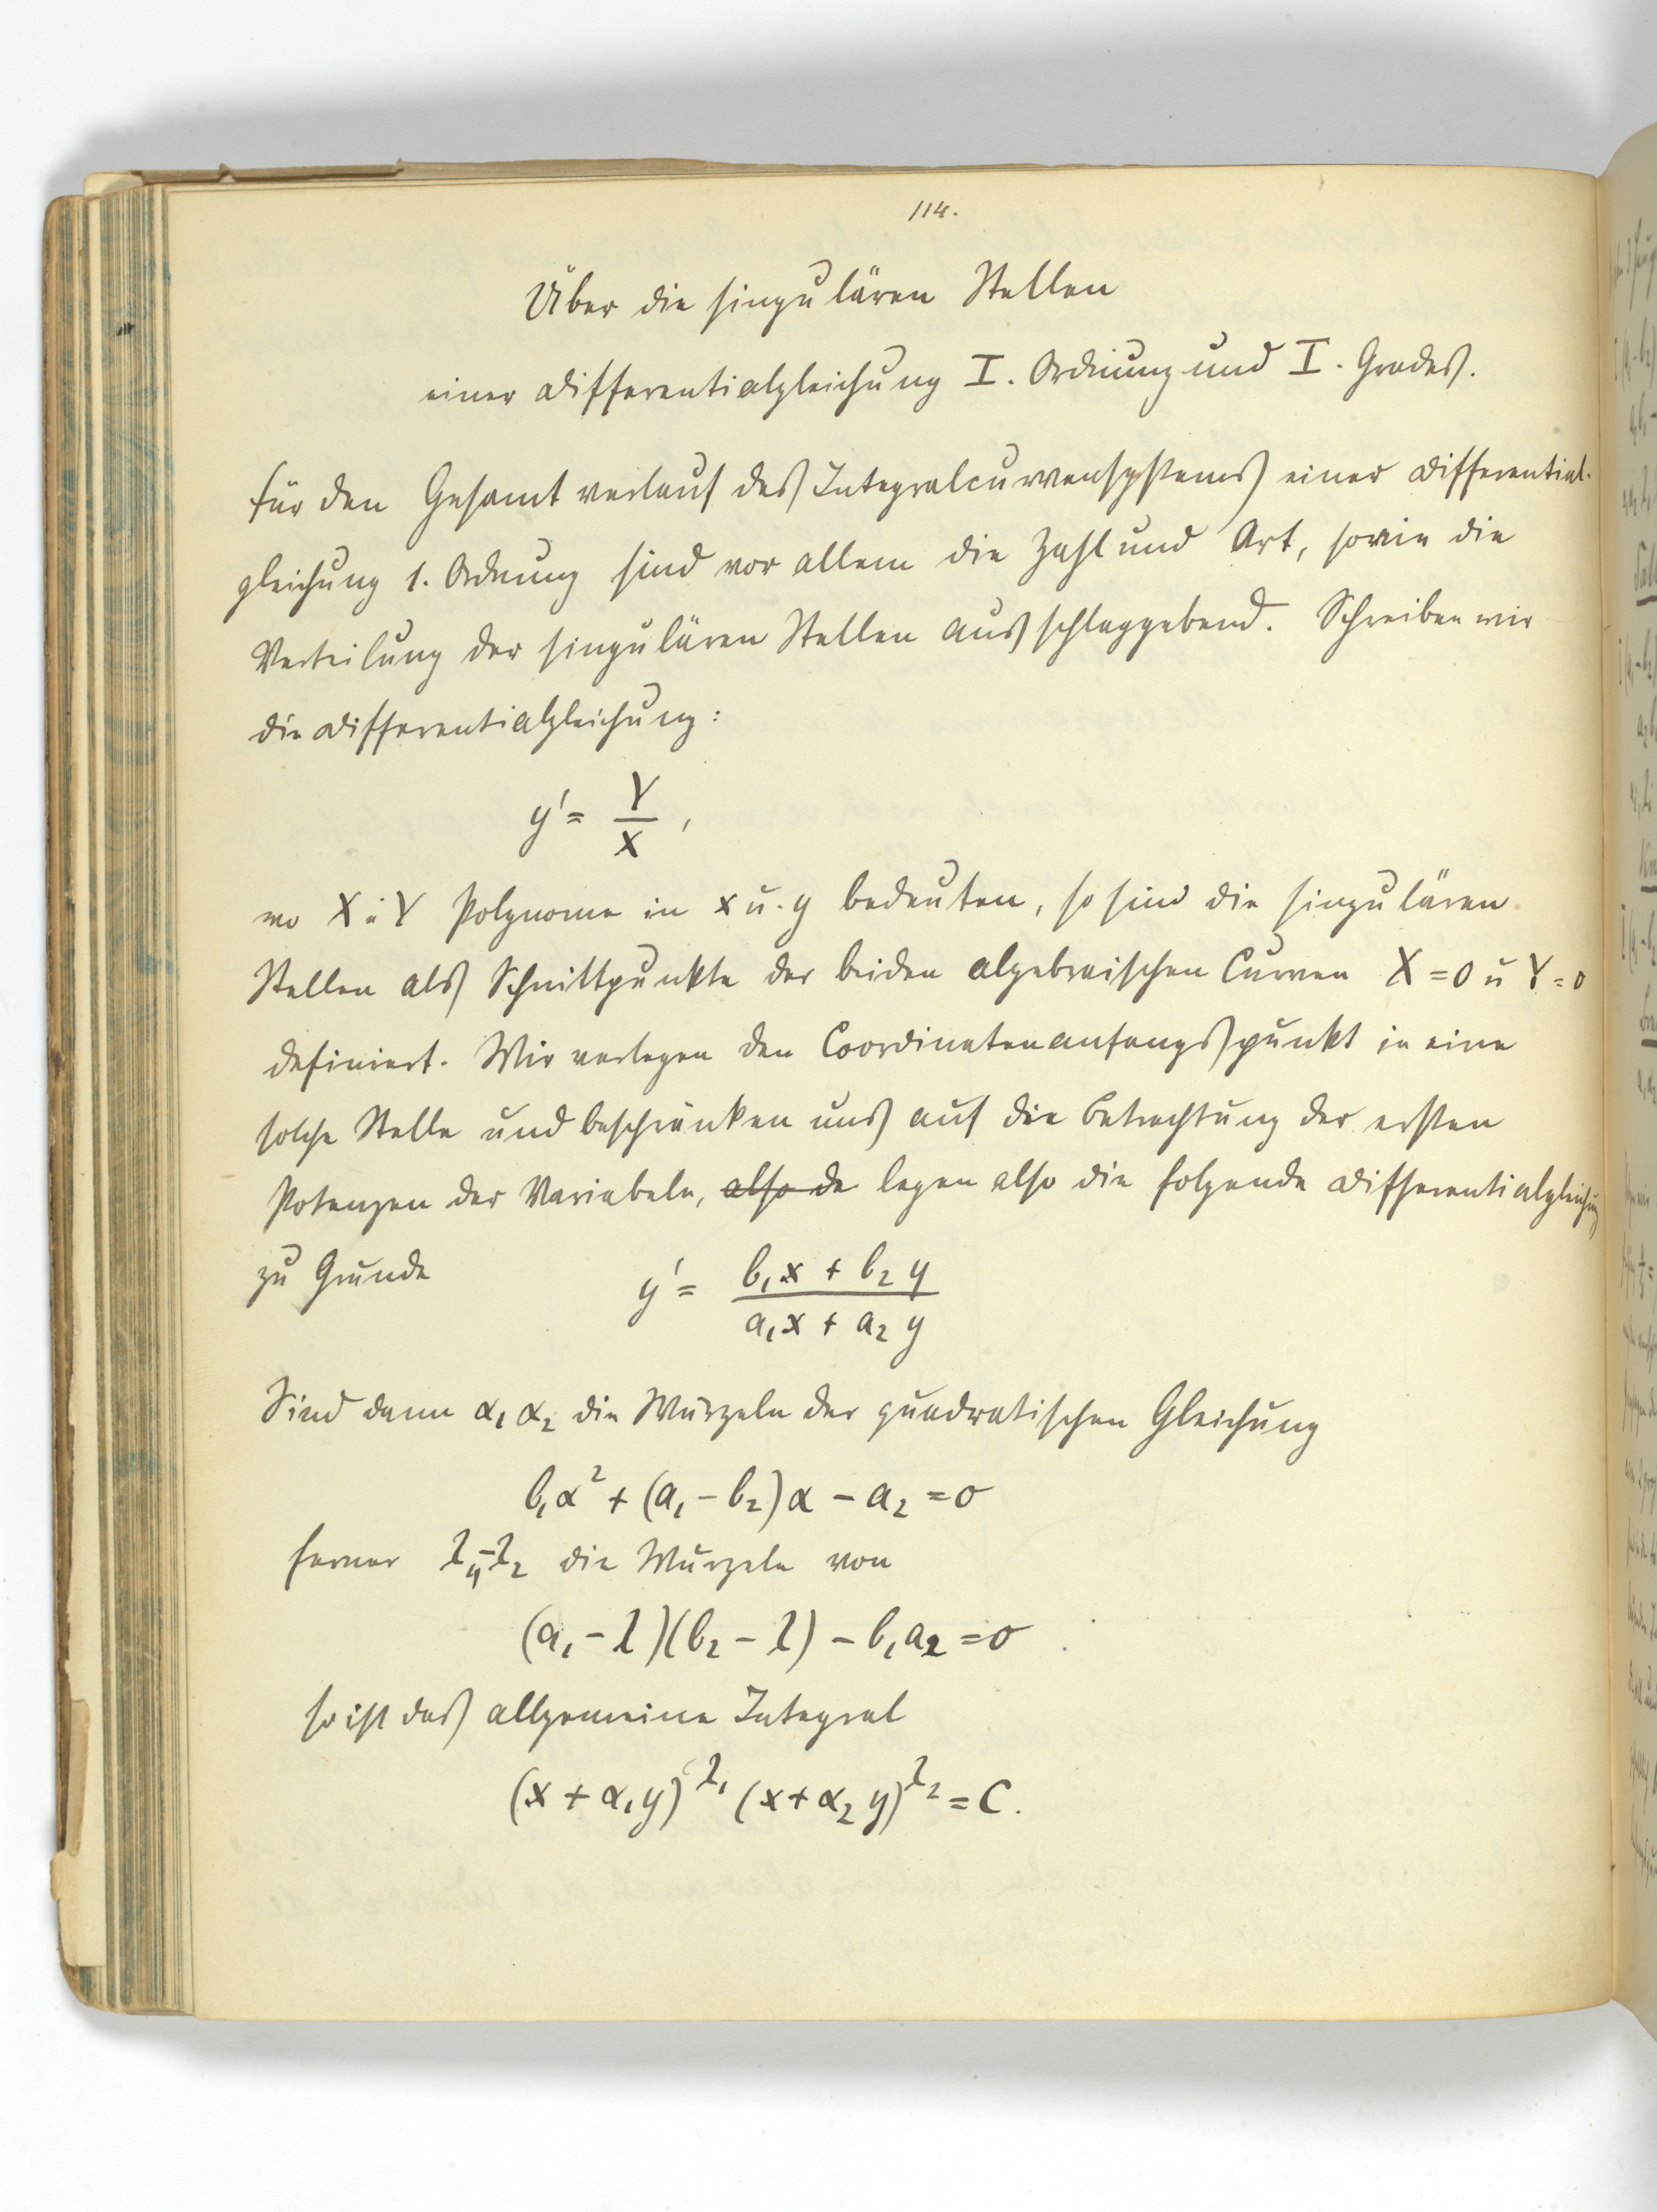 114.
Über die singulären Stellen
einer Differentialgleichung I. Ordnung und I. Grades.
Für den Gesamtverlauf des Integralcurvensystems einer Differential-
gleichung 1. Ordnung sind vor allem die Zahl und Art, sowie die
Verteilung der singulären Stellen ausschlaggebend. Schreiben wir
die Differentialgleichung:
y' = Y/X,
wo X u Y Polynome in x u. y bedeuten, so sind die singulären
Stellen als Schnittpunkte der beiden algebraischen Curven X = 0 u Y = 0
definiert. Wir verlegen den Coordinatenanfangspunkt in eine
solche Stelle und beschränken uns auf die Betrachtung der ersten
Potenzen der Variabeln, also de legen also die folgende Differentialgleichung
zu Grunde y' = (b₁x + b₂y)/(a₁x + a₂y)
Sind dann α₁ α₂ die Wurzeln der quadratischen Gleichung
b₁α² + (a₁ - b₂)α - a₂ = 0
ferner λ₁, -λ₂ die Wurzeln von
(a₁ - λ)(b₂ - λ) - b₁a₂ = 0
so ist das allgemeine Integral
(x + α₁y)^λ₁ (x + α₂y)^λ₂ = C.